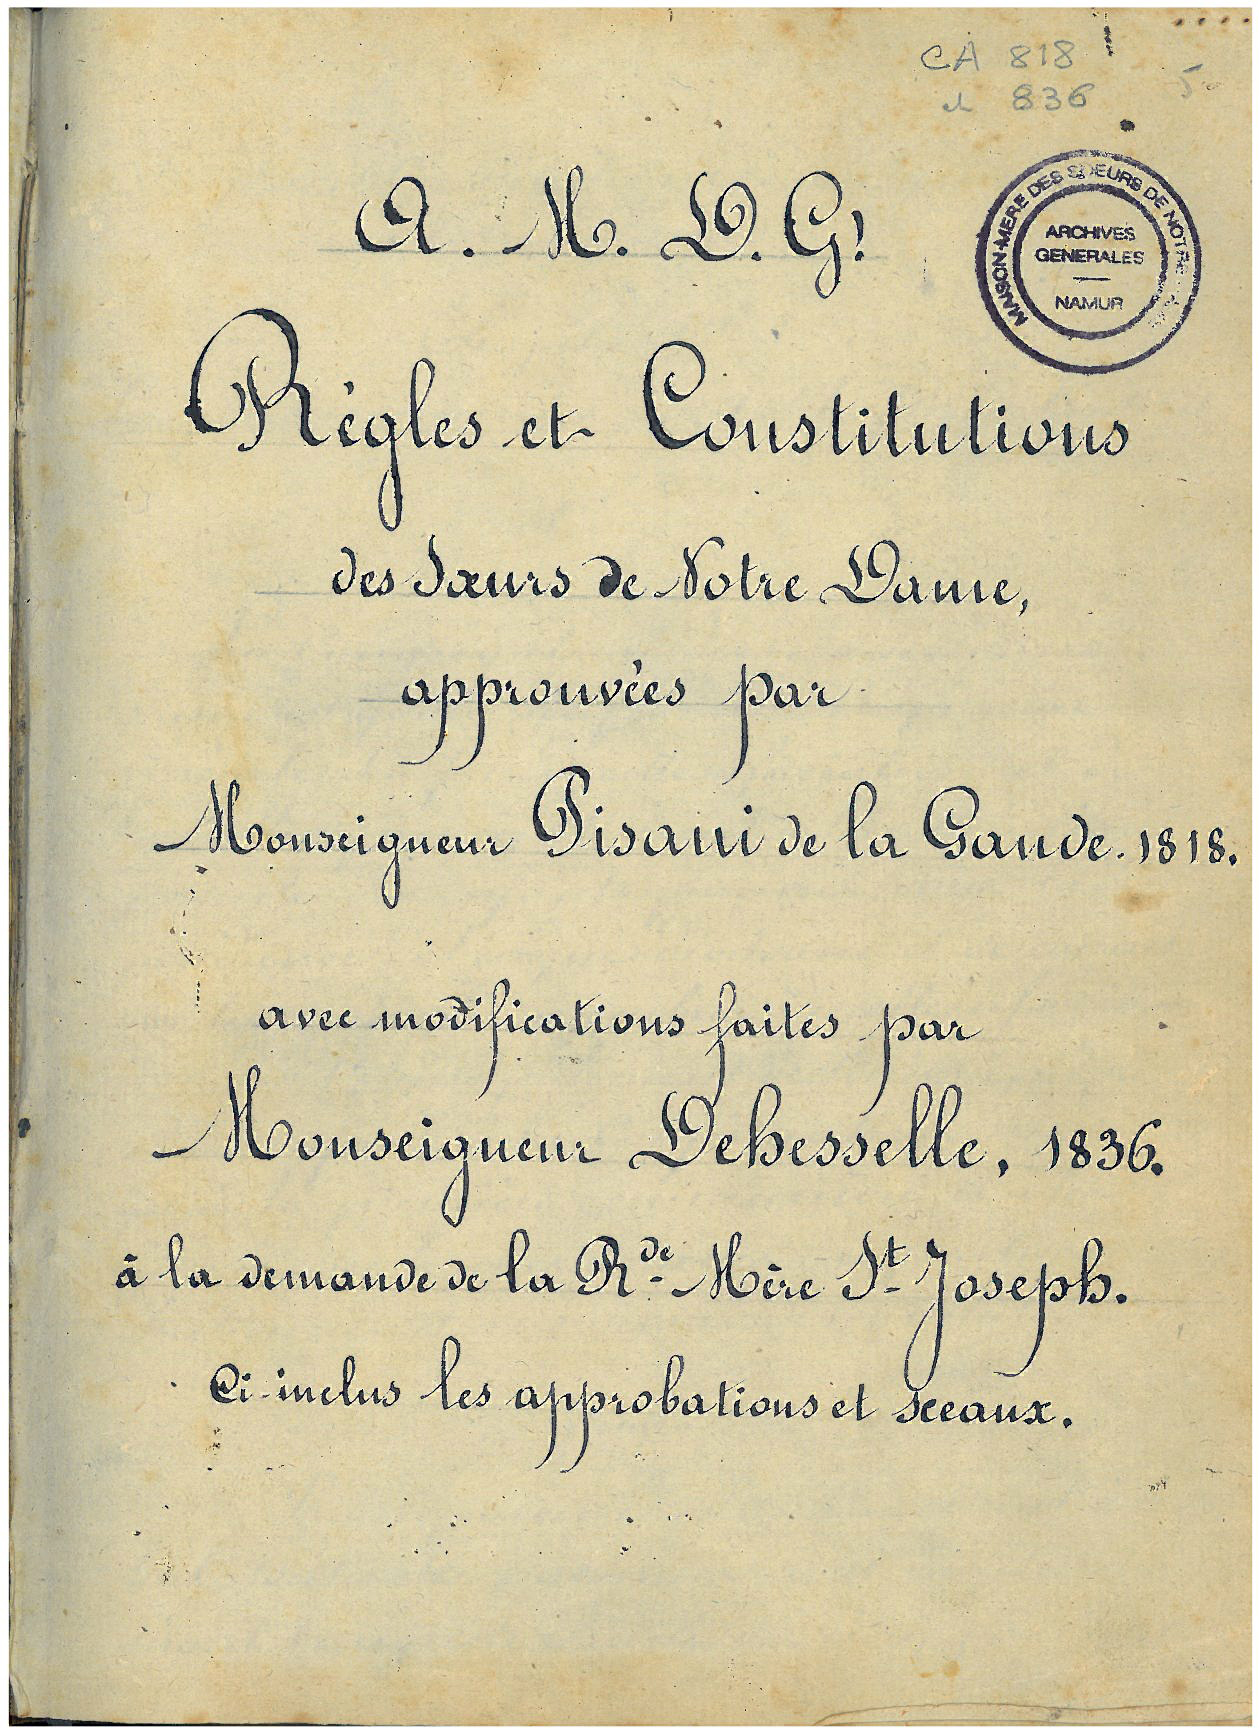 CA 818
et 836
MAISON-MERE DES SOEURS DE NOTRE
ARCHIVES
GENERALES
NAMUR
A. M. D. G!
Règles et Constitutions
des Sœurs de Notre Dame,
approuvées par
Monseigneur Pisani de la Gaude. 1818.
avec modifications faites par
Monseigneur Dehesselle, 1836.
à la demande de la Rde Mère St Joseph.
Ci-inclus les approbations et sceaux.